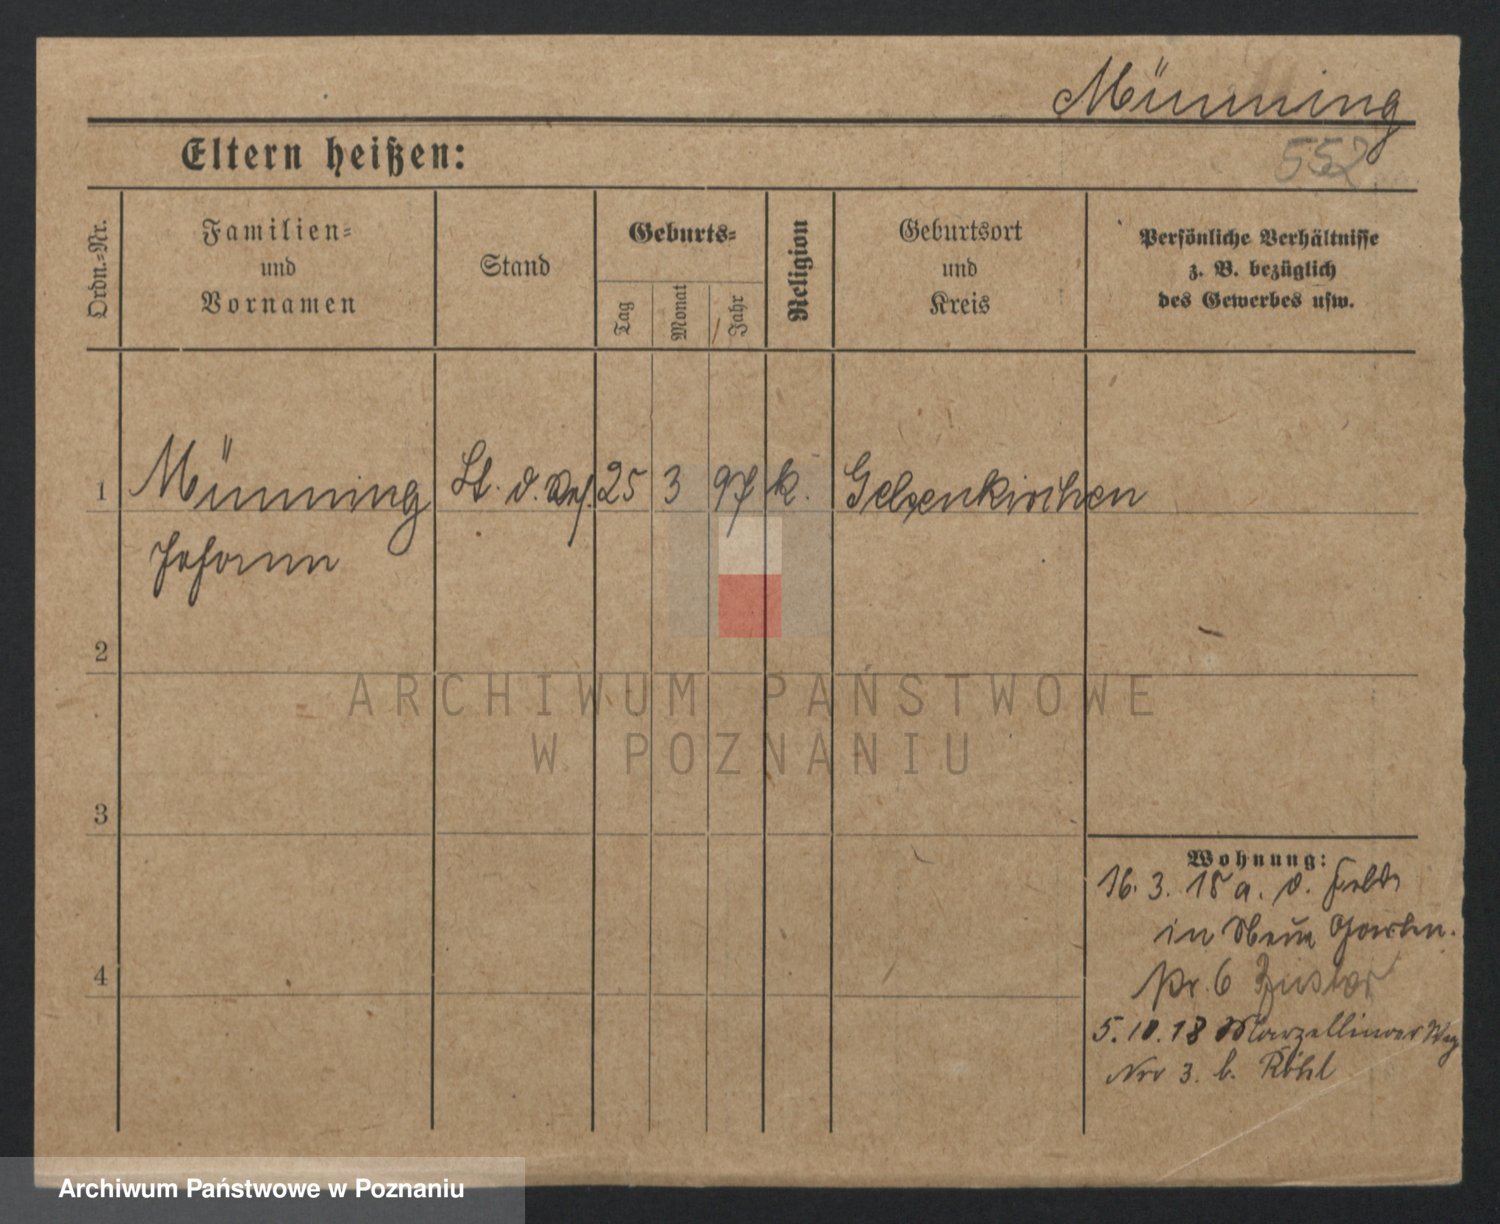 Münning
552
Eltern heißen:
Ordn.-Nr.
Familien-
und
Vornamen
Stand
Geburts-
Tag
Monat
Jahr
Religion
Geburtsort
und
Kreis
Persönliche Verhältnisse
z. B. bezüglich
des Gewerbes usw.
1 Münning Lt. d. Res. 25 3 97 k. Gelsenkirchen
Johann
2
3
4
ARCHIWUM PAŃSTWOWE
W POZNANIU
Wohnung:
16. 3. 18 a. d. Felde
in
Nr. 6
5. 10. 18 Marzelliner Weg
Nr 3. b. Röhl
Archiwum Państwowe w Poznaniu